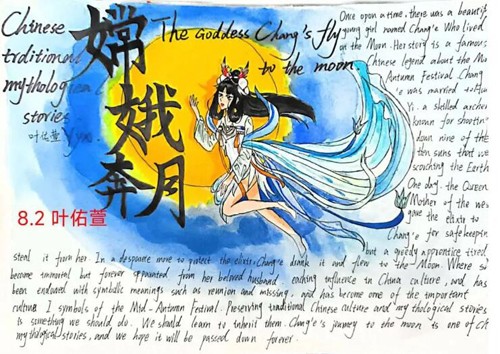 Chinese
trditional
mythological
stories
叶佑萱
嫦娥奔月
The Goddess Chang's fly
to the moon
8.2 叶佑萱
Once upon a time, there was a beautif
young girl named Chang'e Who lived
on the Moon. Her story is a famous
Chinese legend about the Mid
Autumn Festival. Chang
'e was married to Hou
Yi, a skilled archer
known for shootin
down nine of the
ten suns that we
scorching the Earth
One day, the Queen
Mother of the we
gave the elixir to
Chang'e for safekeepin
but a greedy apprentice tried
steal it from her. In a desperate move to protect the elixir, Chang'e drank it and flew to the Moon. Where s
become immortal but forever from her beloved husband. influence in China culture, and has
been endowed with symbolic meanings such as reunion and missing, and has become one of the important
symbols of the Mid-Autumn Festival. Preserving traditional Chinese culture and mythological stories
is something we should do. We should learn to inherit them. Chang'e's journey to the moon is one of
mythological stories, and we hope it will be passed down forever.